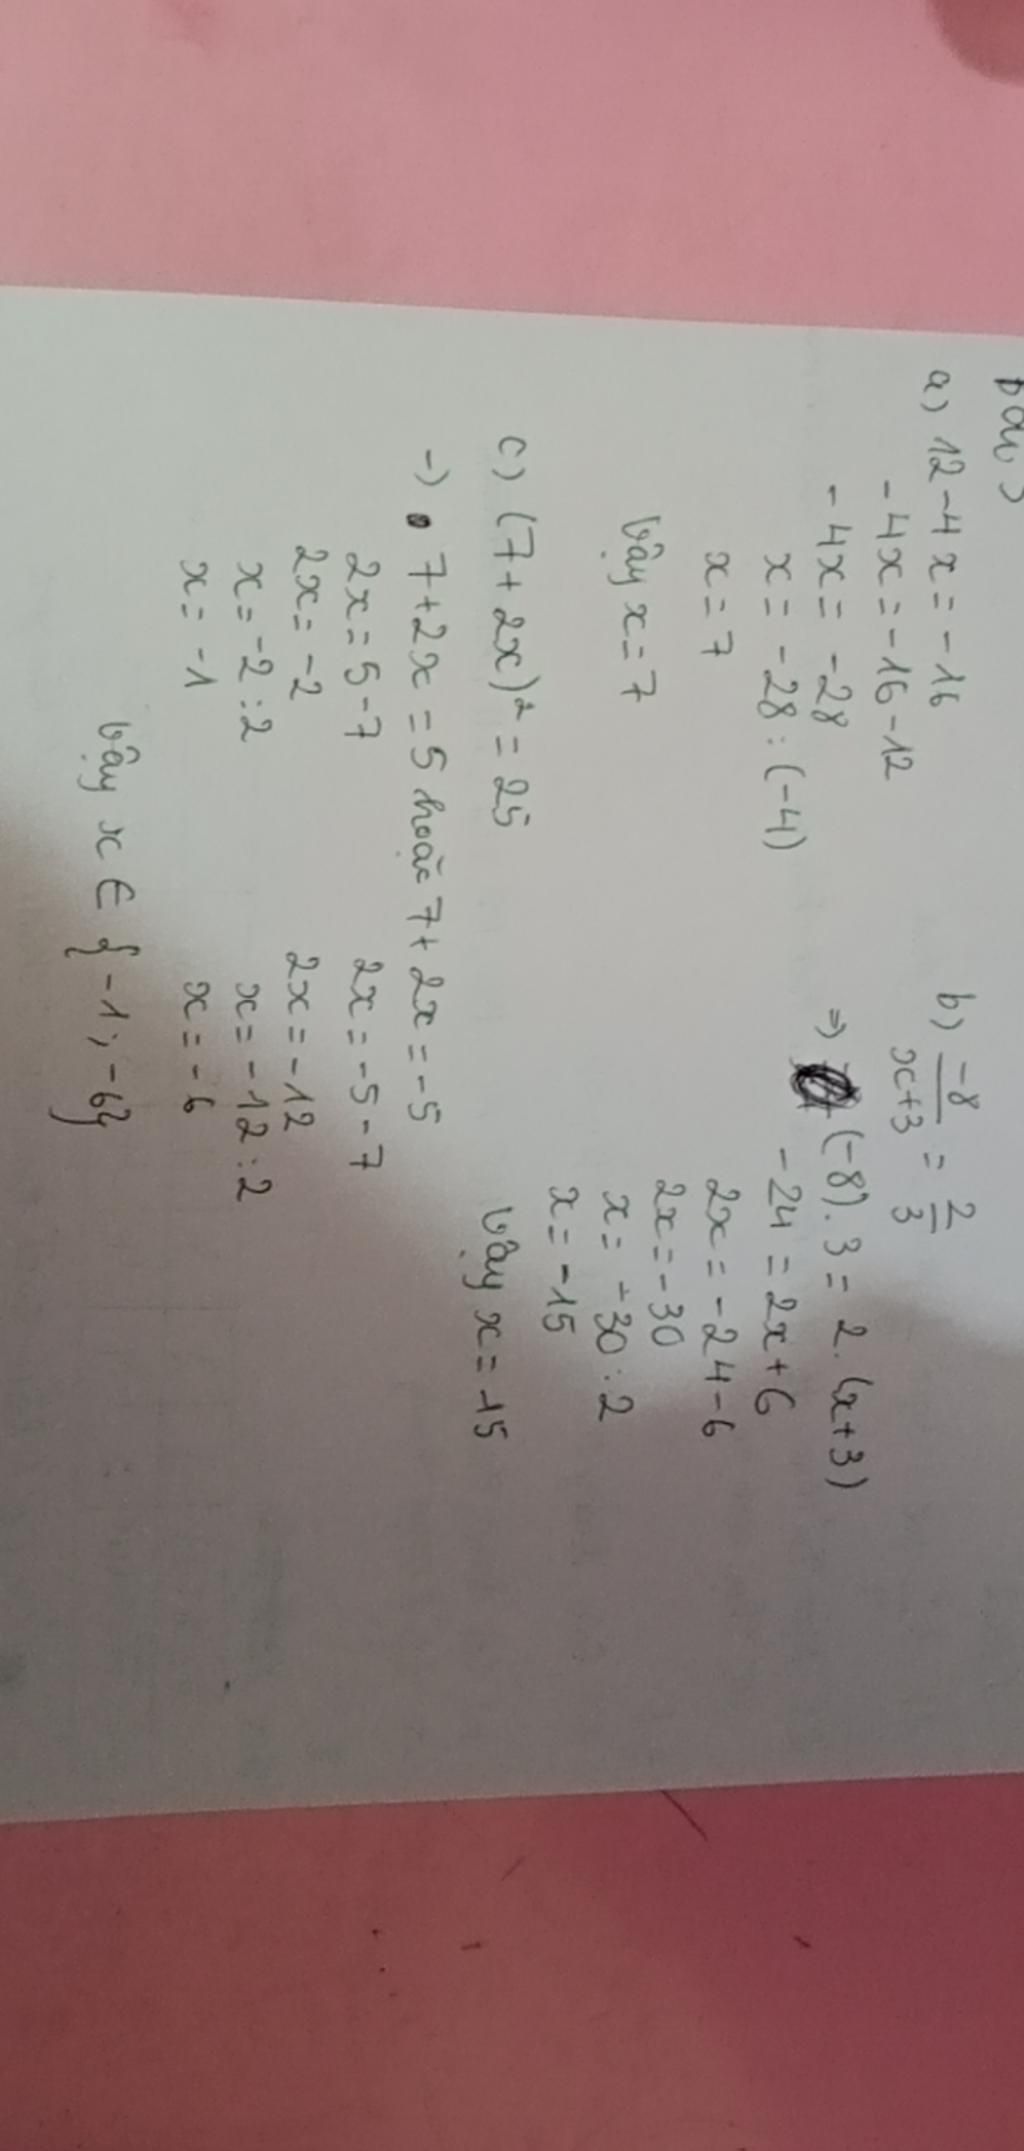 a) 12 - 4x = -16
-4x = -16 - 12
-4x = -28
x = -28 : (-4)
x = 7
Vậy x = 7
b) -8/x+3 = 2/3
=> (-8) . 3 = 2. (x+3)
-24 = 2x + 6
2x = -24 - 6
2x = -30
x = -30 : 2
x = -15
Vậy x = -15
c) (7 + 2x)² = 25
-) 7 + 2x = 5 hoặc 7 + 2x = -5
2x = 5 - 7 2x = -5 - 7
2x = -2 2x = -12
x = -2 : 2 x = -12 : 2
x = -1 x = -6
Vậy x ∈ {-1; -6}